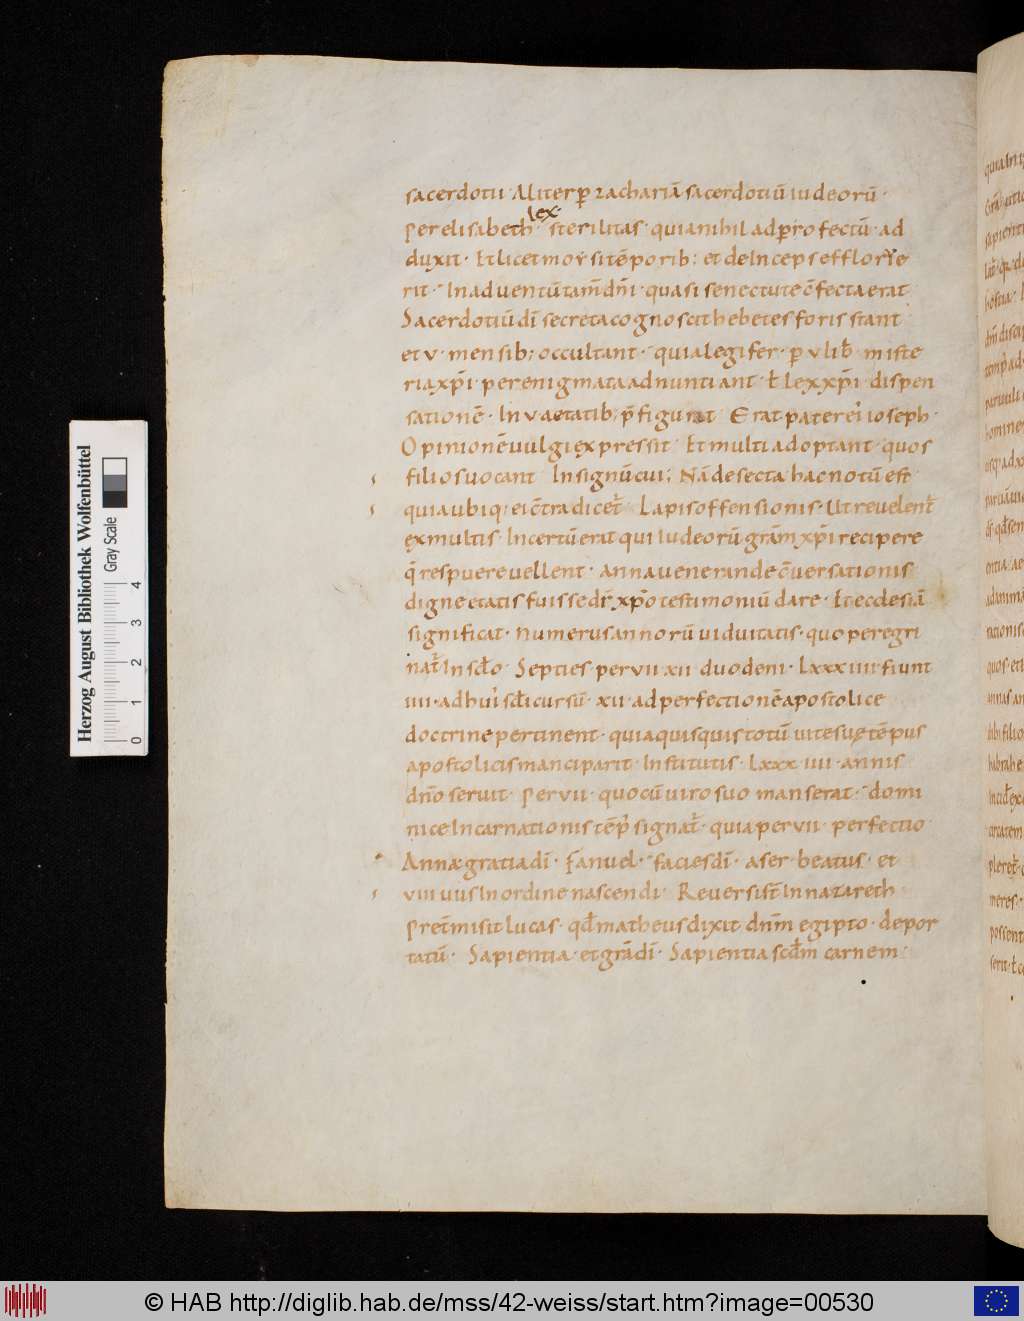 sacerdotii · Aliter ꝑ zachariā sacerdotiū iudeorū ·
lex ·
Per elisabeth · sterilitas · quia nihil ad ꝓfectū · ad
duxit · Et licet moẏsi tēporib; et deinceps effloryẹ
rit · In aduentū tam̄ dn̄i · quasi senectute cōfecta erat
Sacerdotiū dī secreta cognoscit hebetes foris stant
et v · mensib; occultant · quia legifer · ꝑ v lib̄ · miste
ria xp̄i · per enigmata adnuntiant · ł lex xp̄i · dispen
sationē · In v aetatib; p̄figurat Erat pater ei' ioseph ·
Opinionē uulgi expressit Et multi adoptant · quos
filios uocant In signū cui; Nā de secta hac notū est
quia ubiq; ei cōtradicet̄ Lapis offensionis · Ut reuelent̄
ex multis · Incertū erat qui iudeorū grām xp̄i recipere
q̄ respuere uellent · anna uenerande cōuersationis
digne etatis fuisse dr̄ xp̄o testimoniū dare · Et ecclesiā
significat · Numerus annorū uiduitatis · quo peregri
nat̄ In sclo · Septies per vii xii duodeni · Lxxx iiii fiunt
iiii · ad hui' scli cursū · xii · ad perfectionē apostolice
doctrine pertinent · quia quisquis totū uite suę tēpus
apostolicis manciparit Institutis · Lxxx iiii · annis
dn̄o seruit · Per vii · quo cū uiro suo manserat · domi
nice Incarnationis tēp' signat̄ · quia per vii · perfectio
Annæ gratia dī · fanuel · facies dī · aser · beatus · et
viii uus In ordine nascendi · Reuersi st̄ In nazareth
Pret̄misit lucas · qđ matheus dixit dn̄m egipto · depor
tatū · Sapientia · et grā dī · Sapientia scđm carnem ·
Herzog August Bibliothek Wolfenbüttel
Gray Scale
0 1 2 3 4
© HAB http://diglib.hab.de/mss/42-weiss/start.htm?image=00530